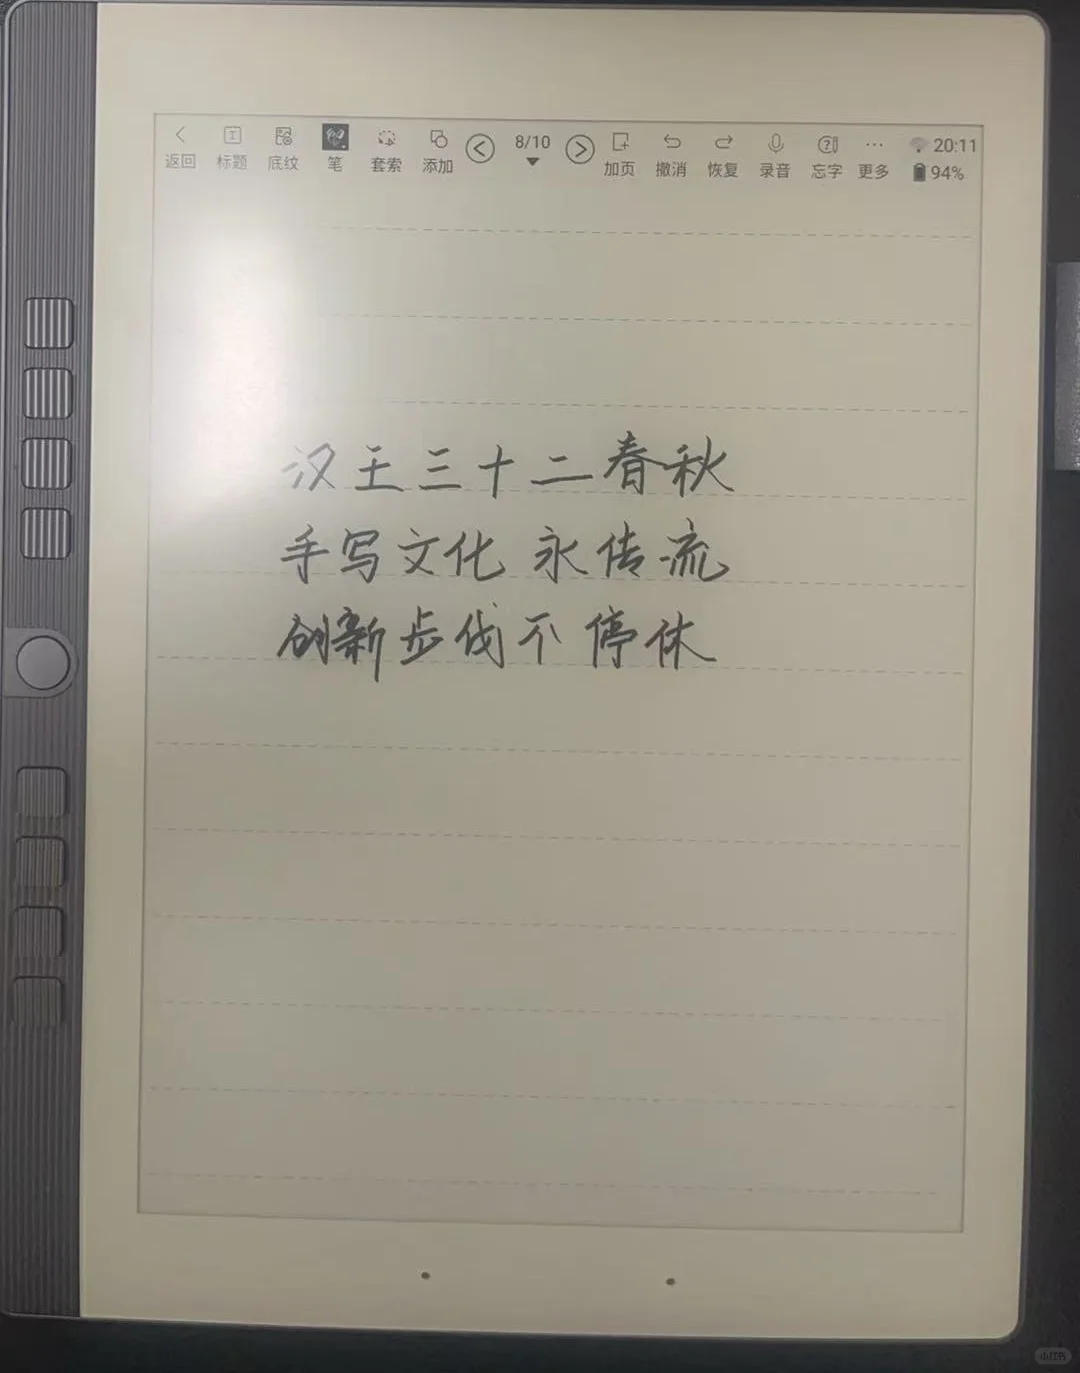 返回 标题 底纹 笔 套索 添加 8/10 加页 撤消 恢复 录音 忘字 更多 20:11 94%
汉王三十二春秋
手写文化永传流
创新步伐不停休
小红书